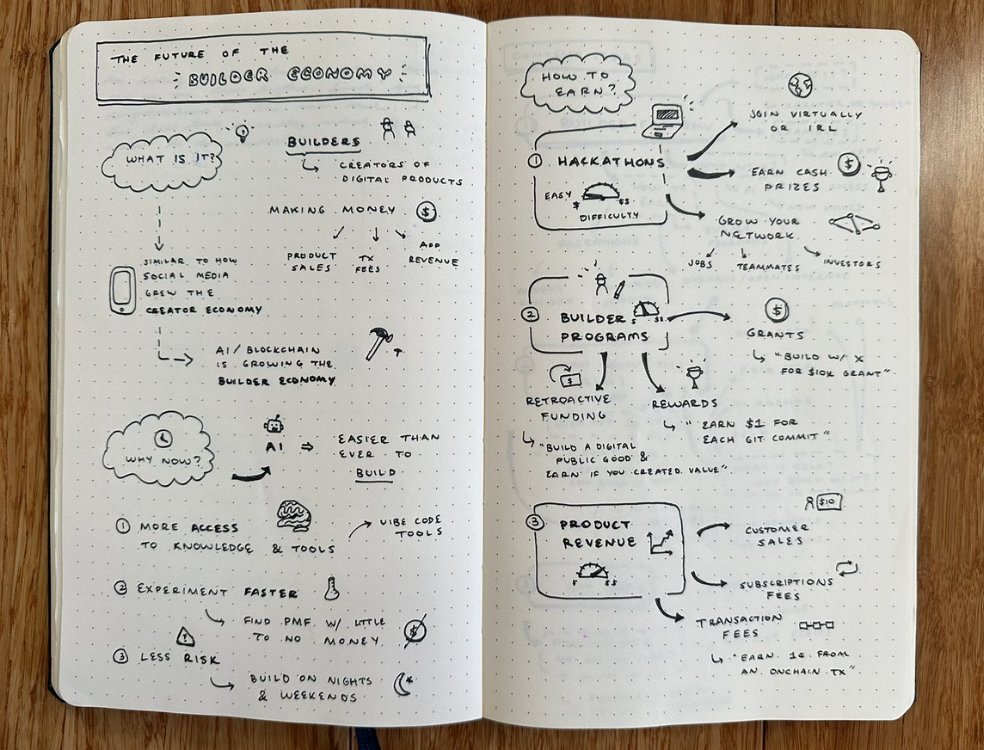 THE FUTURE OF THE
BUILDER ECONOMY
WHAT IS IT?
BUILDERS
CREATORS OF
DIGITAL PRODUCTS
MAKING MONEY $
PRODUCT
SALES
TX
FEES
APP
REVENUE
SIMILAR TO HOW
SOCIAL MEDIA
GREW THE
CREATOR ECONOMY
AI/BLOCKCHAIN
IS GROWING THE
BUILDER ECONOMY
WHY NOW?
AI ⇒ EASIER THAN
EVER TO
BUILD
① MORE ACCESS
TO KNOWLEDGE & TOOLS
VIBE CODE
TOOLS
② EXPERIMENT FASTER
FIND PMF W/ LITTLE
TO NO MONEY $
③ LESS RISK
BUILD ON NIGHTS
& WEEKENDS
HOW TO
EARN?
① HACKATHONS
EASY $ $$
DIFFICULTY
JOIN VIRTUALLY
OR IRL
EARN CASH $
PRIZES
GROW YOUR
NETWORK
JOBS
TEAMMATES
INVESTORS
② BUILDER
PROGRAMS
$ $$
$
GRANTS
"BUILD W/ X
FOR $10K GRANT"
$
RETROACTIVE
FUNDING
"BUILD A DIGITAL
PUBLIC GOOD &
EARN IF YOU CREATED VALUE"
REWARDS
"EARN $1 FOR
EACH GIT COMMIT"
③ PRODUCT
REVENUE
$ $$
$10
CUSTOMER
SALES
SUBSCRIPTIONS
FEES
TRANSACTION
FEES
"EARN 1¢ FROM
AN ONCHAIN TX"